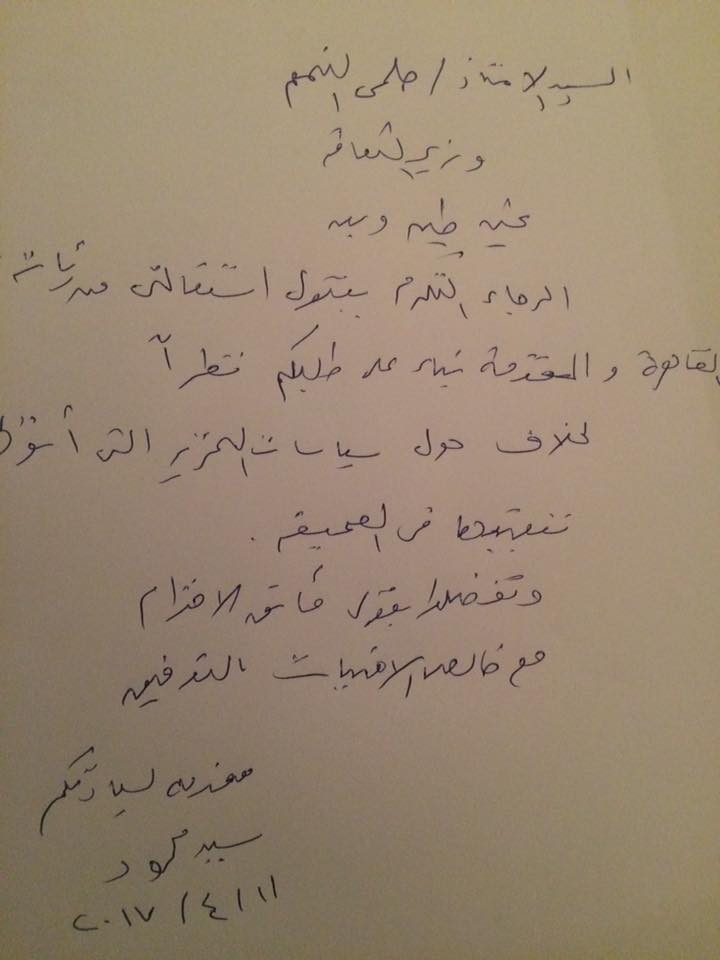 السيد الاستاذ / حلمى النمنم
وزير الثقافة
تحيه طيبه وبعد
الرجاء التكرم بقبول استقالتى من رئاسة
القاهرة والمقدمة بناء على طلبكم نظراً
لخلاف حول سياسات التحرير التى
تنفيذها فى الصحيفه .
وتفضلوا بقبول فائق الاحترام
مع خالص الامنيات بالتوفيق
مقدمه لسيادتكم
سيد محمود
٢٠١٧/٤/١١